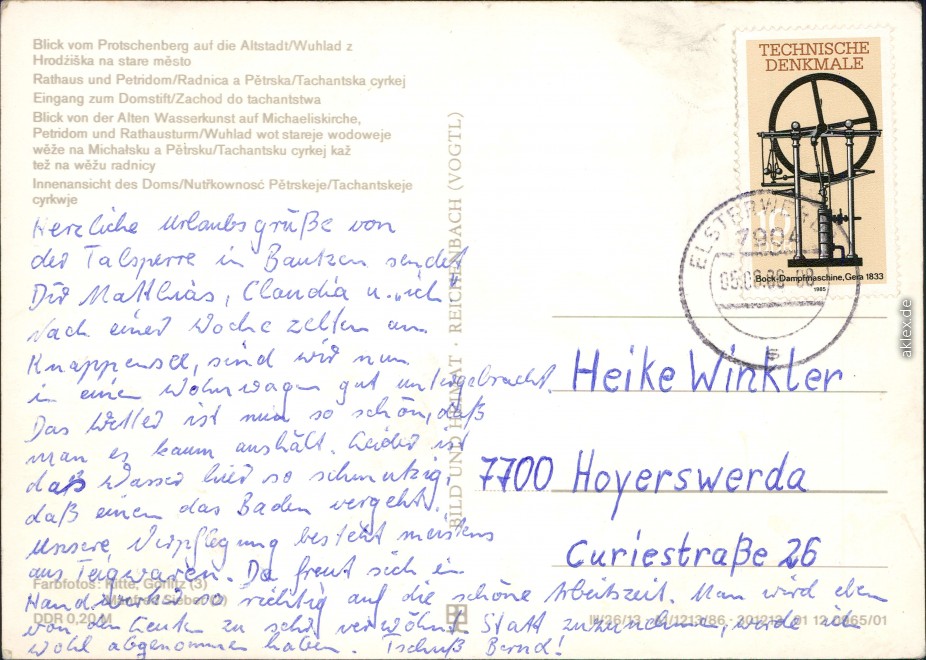 Blick vom Protschenberg auf die Altstadt/Wuhlad z
Hrodźiška na stare město
Rathaus und Petridom/Radnica a Pětrska/Tachantska cyrkej
Eingang zum Domstift/Zachod do tachantstwa
Blick von der Alten Wasserkunst auf Michaeliskirche,
Petridom und Rathausturm/Wuhlad wot stareje wodoweje
wěže na Michałsku a Pětrsku/Tachantsku cyrkej kaž
tež na wěžu radnicy
Innenansicht des Doms/Nutřkownosć Pětrskeje/Tachantskeje
cyrkwje
Herzliche Urlaubsgrüße von
der Talsperre in Bautzen sendet
Dir Matthias, Claudia u. „ich"
Nach einer Woche zelten am
Knappensee, sind wir nun
in einen Wohnwagen gut untergebracht.
Das Wetter ist nun so schön, daß
man es kaum aushält. Leider ist
daß Wasser hier so schmutzig
daß einen das Baden vergeht.
Unsere Verpflegung besteht meistens
aus Teigwaren. Da freut sich ein
Handwerker so richtig auf die schöne Arbeitszeit. Man wird eben
von den Leuten zu sehr verwöhnt. Statt zuzunehmen, werde ich
wohl abgenommen haben. Tschüß Bernd!
Farbfotos: Kitte, Görlitz (3)
Manfred Siebert
DDR 0,20 M
BILD UND HEIMAT · REICHENBACH (VOGTL)
TECHNISCHE
DENKMALE
Bock-Dampfmaschine, Gera 1833
1985
ELSTERWERDA
7904
Heike Winkler
7700 Hoyerswerda
Curiestraße 26
01 12 0965/01
aklex.de